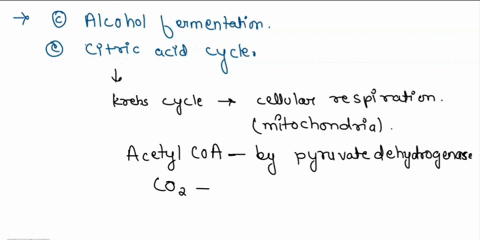 → Ⓒ Alcohol fermentation.
ⓔ Citric acid cycle.
↓
krebs cycle → cellular respiration.
(mitochondria).
Acetyl CoA — by pyruvate dehydrogenase
CO₂ —